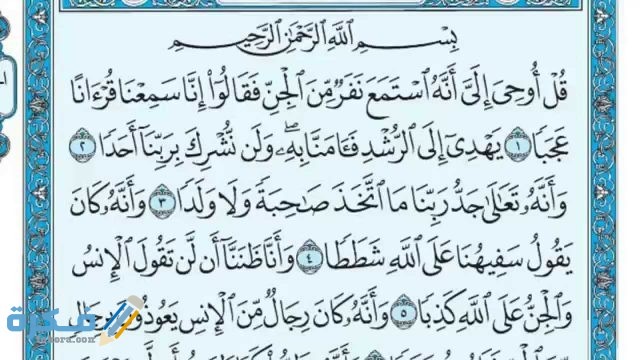 بِسْمِ اللَّهِ الرَّحْمَٰنِ الرَّحِيمِ
قُلْ أُوحِيَ إِلَيَّ أَنَّهُ ٱسْتَمَعَ نَفَرٌ مِّنَ ٱلْجِنِّ فَقَالُوٓا۟ إِنَّا سَمِعْنَا قُرْءَانًا
عَجَبًا ١ يَهْدِىٓ إِلَى ٱلرُّشْدِ فَـَٔامَنَّا بِهِۦ ۖ وَلَن نُّشْرِكَ بِرَبِّنَآ أَحَدًا ٢
وَأَنَّهُۥ تَعَٰلَىٰ جَدُّ رَبِّنَا مَا ٱتَّخَذَ صَٰحِبَةً وَلَا وَلَدًا ٣ وَأَنَّهُۥ كَانَ
يَقُولُ سَفِيهُنَا عَلَى ٱللَّهِ شَطَطًا ٤ وَأَنَّا ظَنَنَّآ أَن لَّن تَقُولَ ٱلْإِنسُ
وَٱلْجِنُّ عَلَى ٱللَّهِ كَذِبًا ٥ وَأَنَّهُۥ كَانَ رِجَالٌ مِّنَ ٱلْإِنسِ يَعُوذُونَ بِرِجَالٍ
فكرة